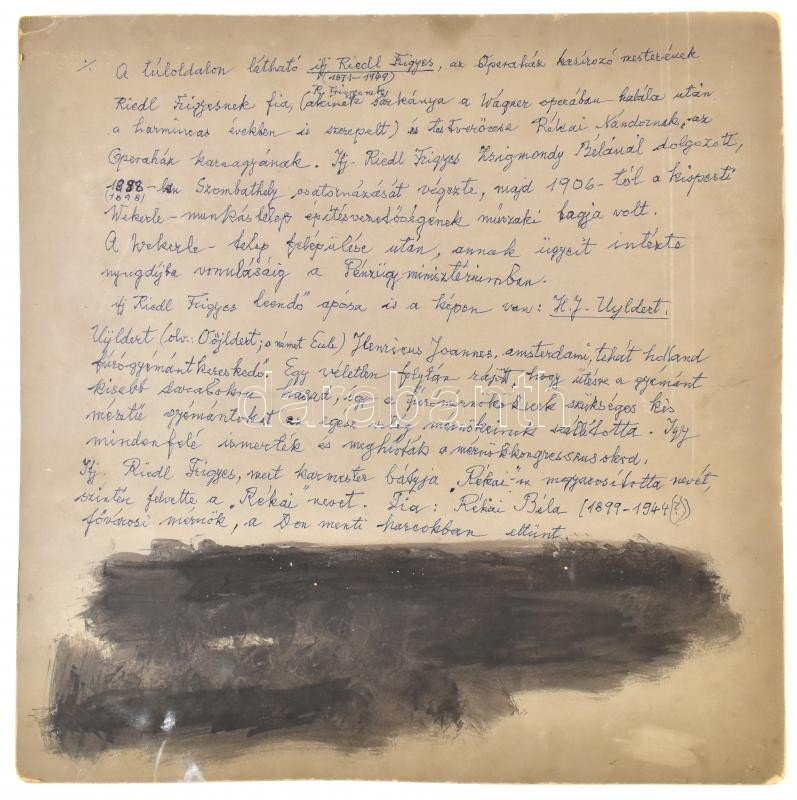 1/.
A túloldalon látható ifj Riedl Frigyes, az Operaház kasírozó mesterének
(1871-1949)
R. Frigyesnek
Riedl Frigyesnek fia, (akinek sárkánya a Wagner operában halála után
a harmincas években is szerepelt) és testvéröccse Rékai Nándornak, az
Operaház karnagyjának. Ifj. Riedl Frigyes Zsigmondy Bélánál dolgozott,
1898-ban Szombathely csatornázását végezte, majd 1906-tól a kispesti
(1898)
Wekerle-munkástelep építésvezetőségének műszaki tagja volt.
A Wekerle-telep felépülése után, annak ügyeit intézte
nyugdíjba vonulásáig a Pénzügyminisztériumban.
ifj Riedl Frigyes leendő apósa is a képen van: H.J. Uyldert.
Uÿldert (olv.: Oöjldert; a német Eule) Henricus Joannes, amsterdami, tehát holland
fúrógyémántkereskedő. Egy véletlen folytán rájött, hogy ütésre a gyémánt
kisebb darabokra hasad, így a fúrómérnököknek szükséges kis
méretű gyémántokat az egész világ mérnökeinek szállította. Így
mindenfelé ismerték és meghívták a mérnökkongresszusokra.
Ifj. Riedl Frigyes, mert karmester bátyja "Rékai"-ra magyarosította nevét,
szintén felvette a "Rékai" nevet. Fia: Rékai Béla [1899-1944(?)]
fővárosi mérnök, a Don menti harcokban eltűnt.
darabanth